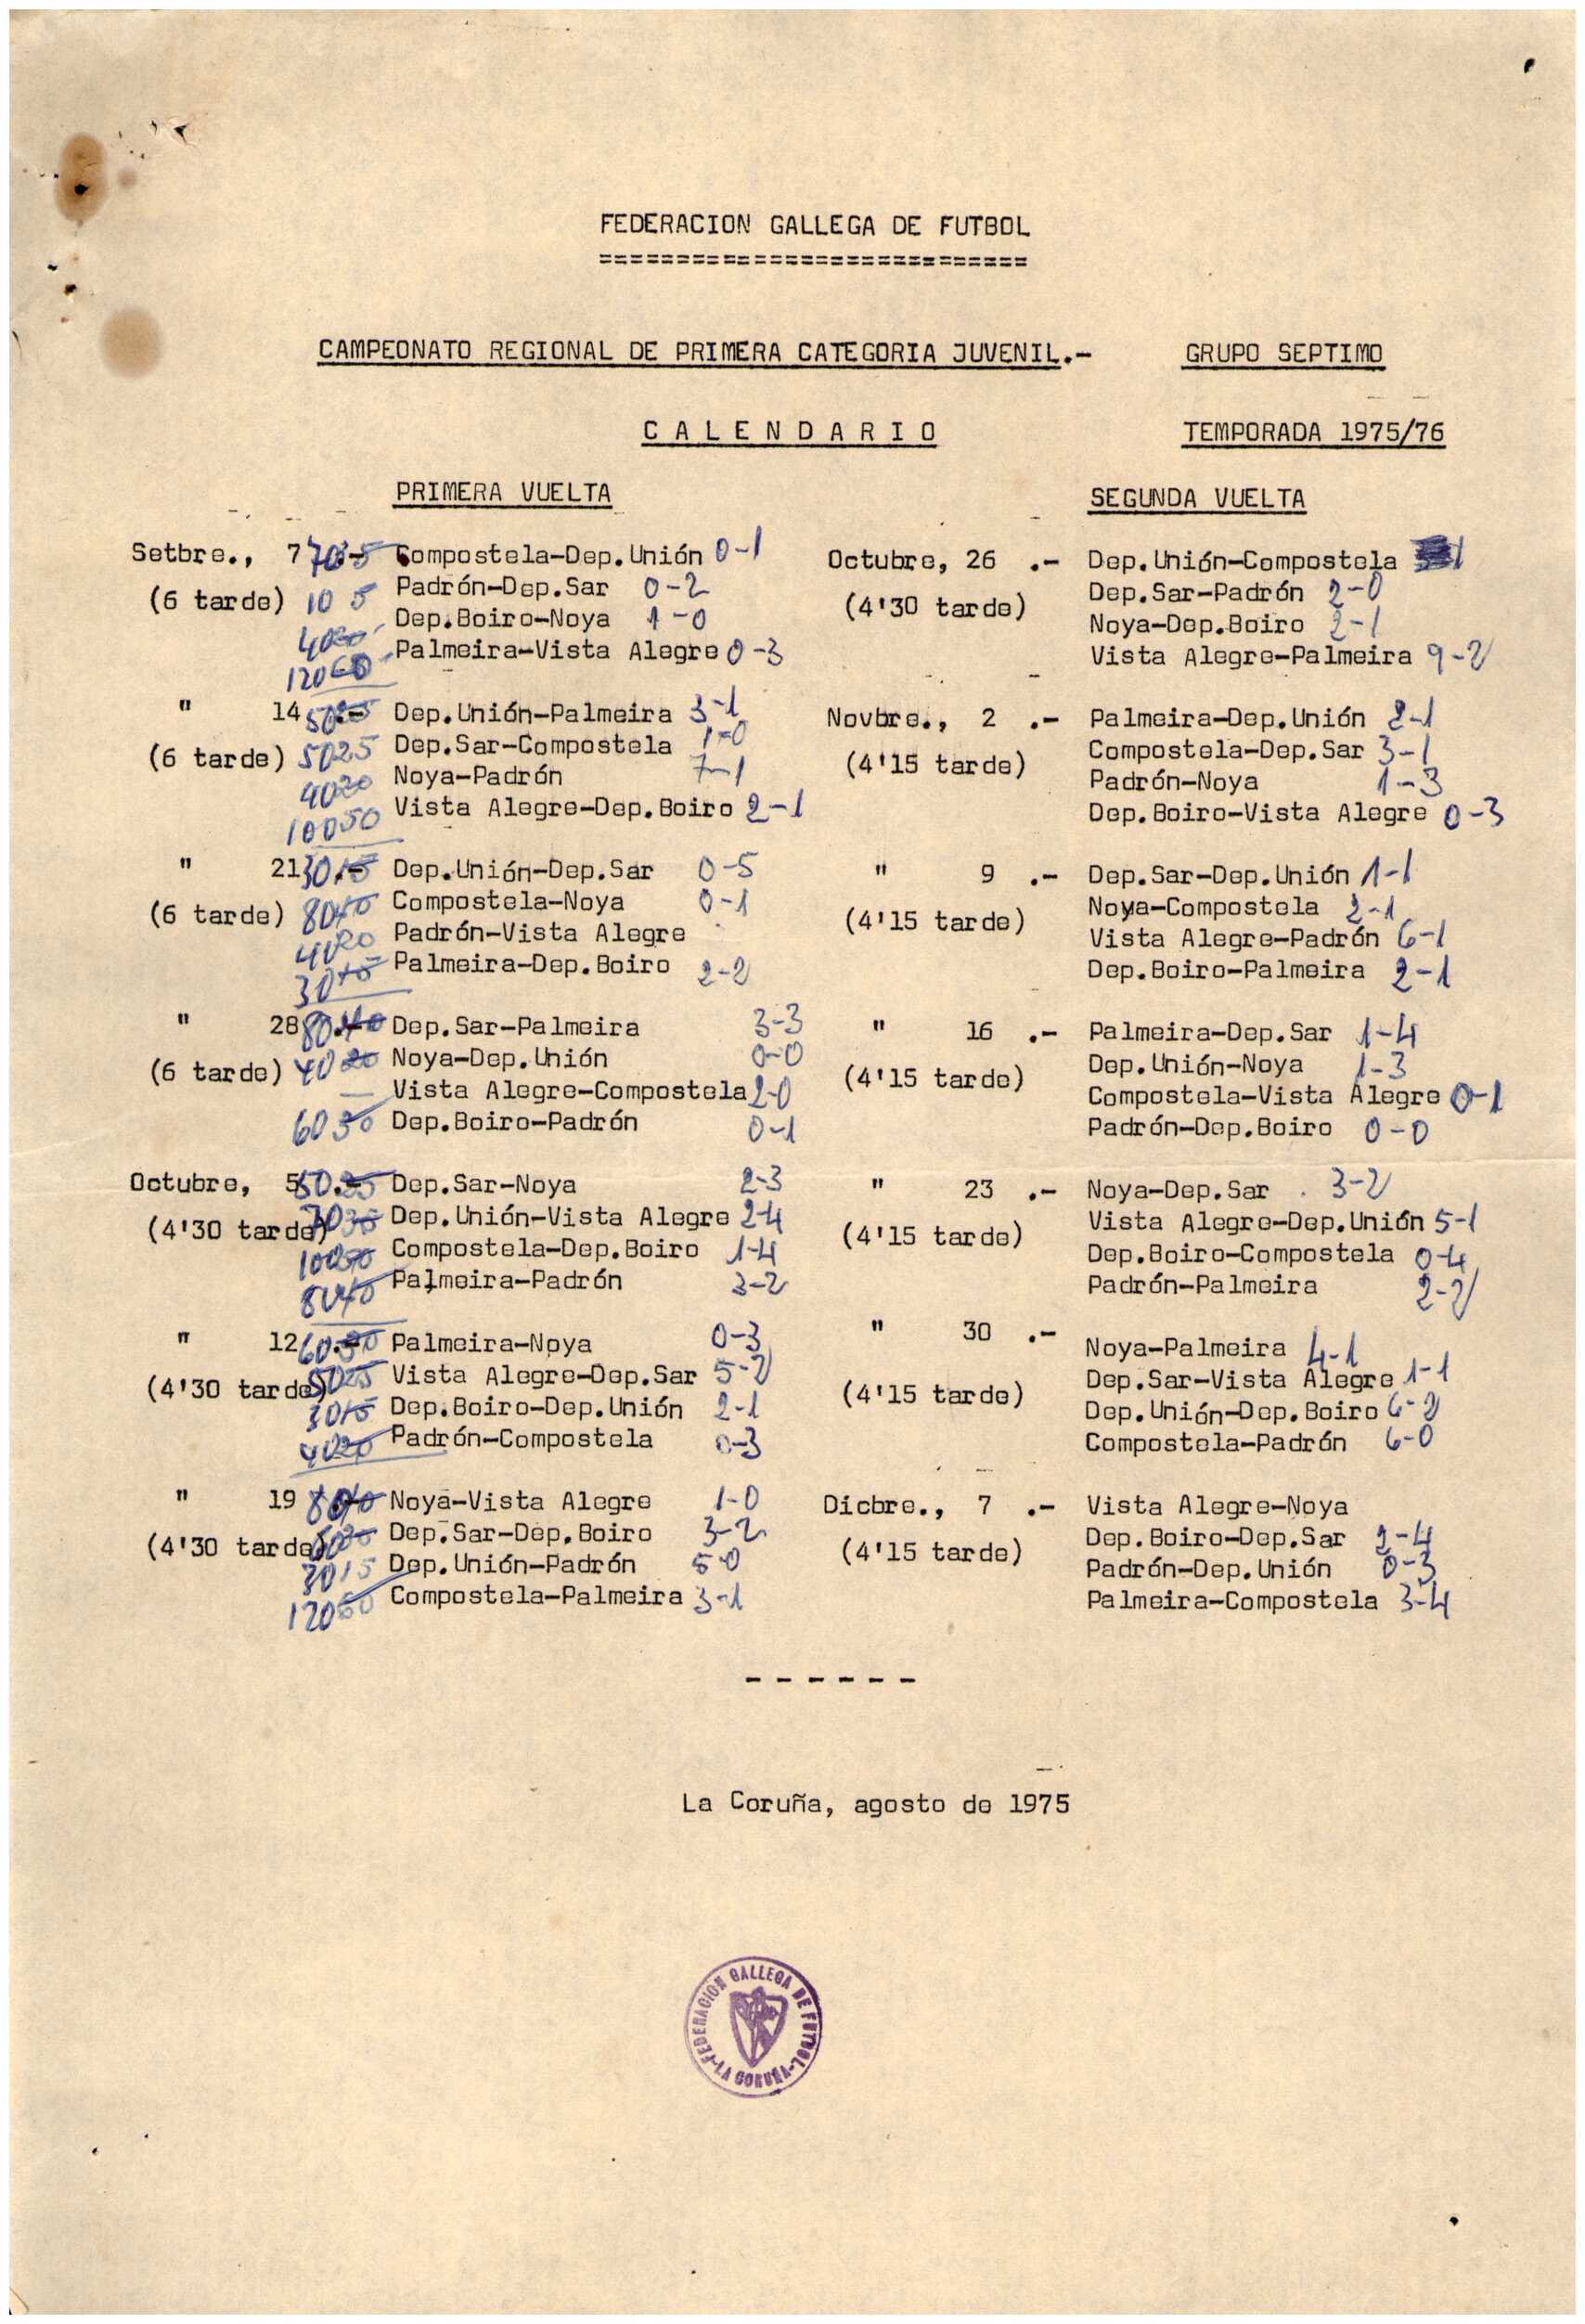 FEDERACION GALLEGA DE FUTBOL
===========================
CAMPEONATO REGIONAL DE PRIMERA CATEGORIA JUVENIL.- GRUPO SEPTIMO
C A L E N D A R I O TEMPORADA 1975/76
PRIMERA VUELTA
Setbre., 7 Compostela-Dep.Unión 0-1
Padrón-Dep.Sar 0-2
(6 tarde) 10 5
Dep.Boiro-Noya 1-0
Palmeira-Vista Alegre 0-3
" 14 Dep.Unión-Palmeira 3-1
Dep.Sar-Compostela 1-0
(6 tarde) 5025
Noya-Padrón 7-1
4020
Vista Alegre-Dep.Boiro 2-1
10050
" 21 3015 Dep.Unión-Dep.Sar 0-5
Compostela-Noya 0-1
(6 tarde) 8040
Padrón-Vista Alegre
4020
Palmeira-Dep.Boiro 2-2
3015
" 28 8040 Dep.Sar-Palmeira 3-3
Noya-Dep.Unión 0-0
(6 tarde) 4020
Vista Alegre-Compostela 2-0
6030 Dep.Boiro-Padrón 0-1
Octubre, 5 Dep.Sar-Noya 2-3
Dep.Unión-Vista Alegre 2-4
(4'30 tarde)
Compostela-Dep.Boiro 1-4
10050
Palmeira-Padrón 3-2
8040
" 12 6030 Palmeira-Noya 0-3
Vista Alegre-Dep.Sar 5-2
(4'30 tarde) 5025
Dep.Boiro-Dep.Unión 2-1
3015
Padrón-Compostela 0-3
4020
" 19 8040 Noya-Vista Alegre 1-0
Dep.Sar-Dep.Boiro 3-2
(4'30 tarde)
Dep.Unión-Padrón 5-0
3015
Compostela-Palmeira 3-1
12060
SEGUNDA VUELTA
Octubre, 26 .- Dep.Unión-Compostela
Dep.Sar-Padrón 2-0
(4'30 tarde)
Noya-Dep.Boiro 2-1
Vista Alegre-Palmeira 9-2
Novbre., 2 .- Palmeira-Dep.Unión 2-1
Compostela-Dep.Sar 3-1
(4'15 tarde)
Padrón-Noya 1-3
Dep.Boiro-Vista Alegre 0-3
" 9 .- Dep.Sar-Dep.Unión 1-1
Noya-Compostela 2-1
(4'15 tarde)
Vista Alegre-Padrón 6-1
Dep.Boiro-Palmeira 2-1
" 16 .- Palmeira-Dep.Sar 1-4
Dep.Unión-Noya 1-3
(4'15 tarde)
Compostela-Vista Alegre 0-1
Padrón-Dep.Boiro 0-0
" 23 .- Noya-Dep.Sar 3-2
Vista Alegre-Dep.Unión 5-1
(4'15 tarde)
Dep.Boiro-Compostela 0-4
Padrón-Palmeira 2-2
" 30 .-
Noya-Palmeira 4-1
Dep.Sar-Vista Alegre 1-1
(4'15 tarde)
Dep.Unión-Dep.Boiro 6-2
Compostela-Padrón 6-0
Dicbre., 7 .- Vista Alegre-Noya
Dep.Boiro-Dep.Sar 2-4
(4'15 tarde)
Padrón-Dep.Unión 0-3
Palmeira-Compostela 3-4
------
La Coruña, agosto de 1975
FEDERACION GALLEGA DE FUTBOL
-LA CORUÑA-